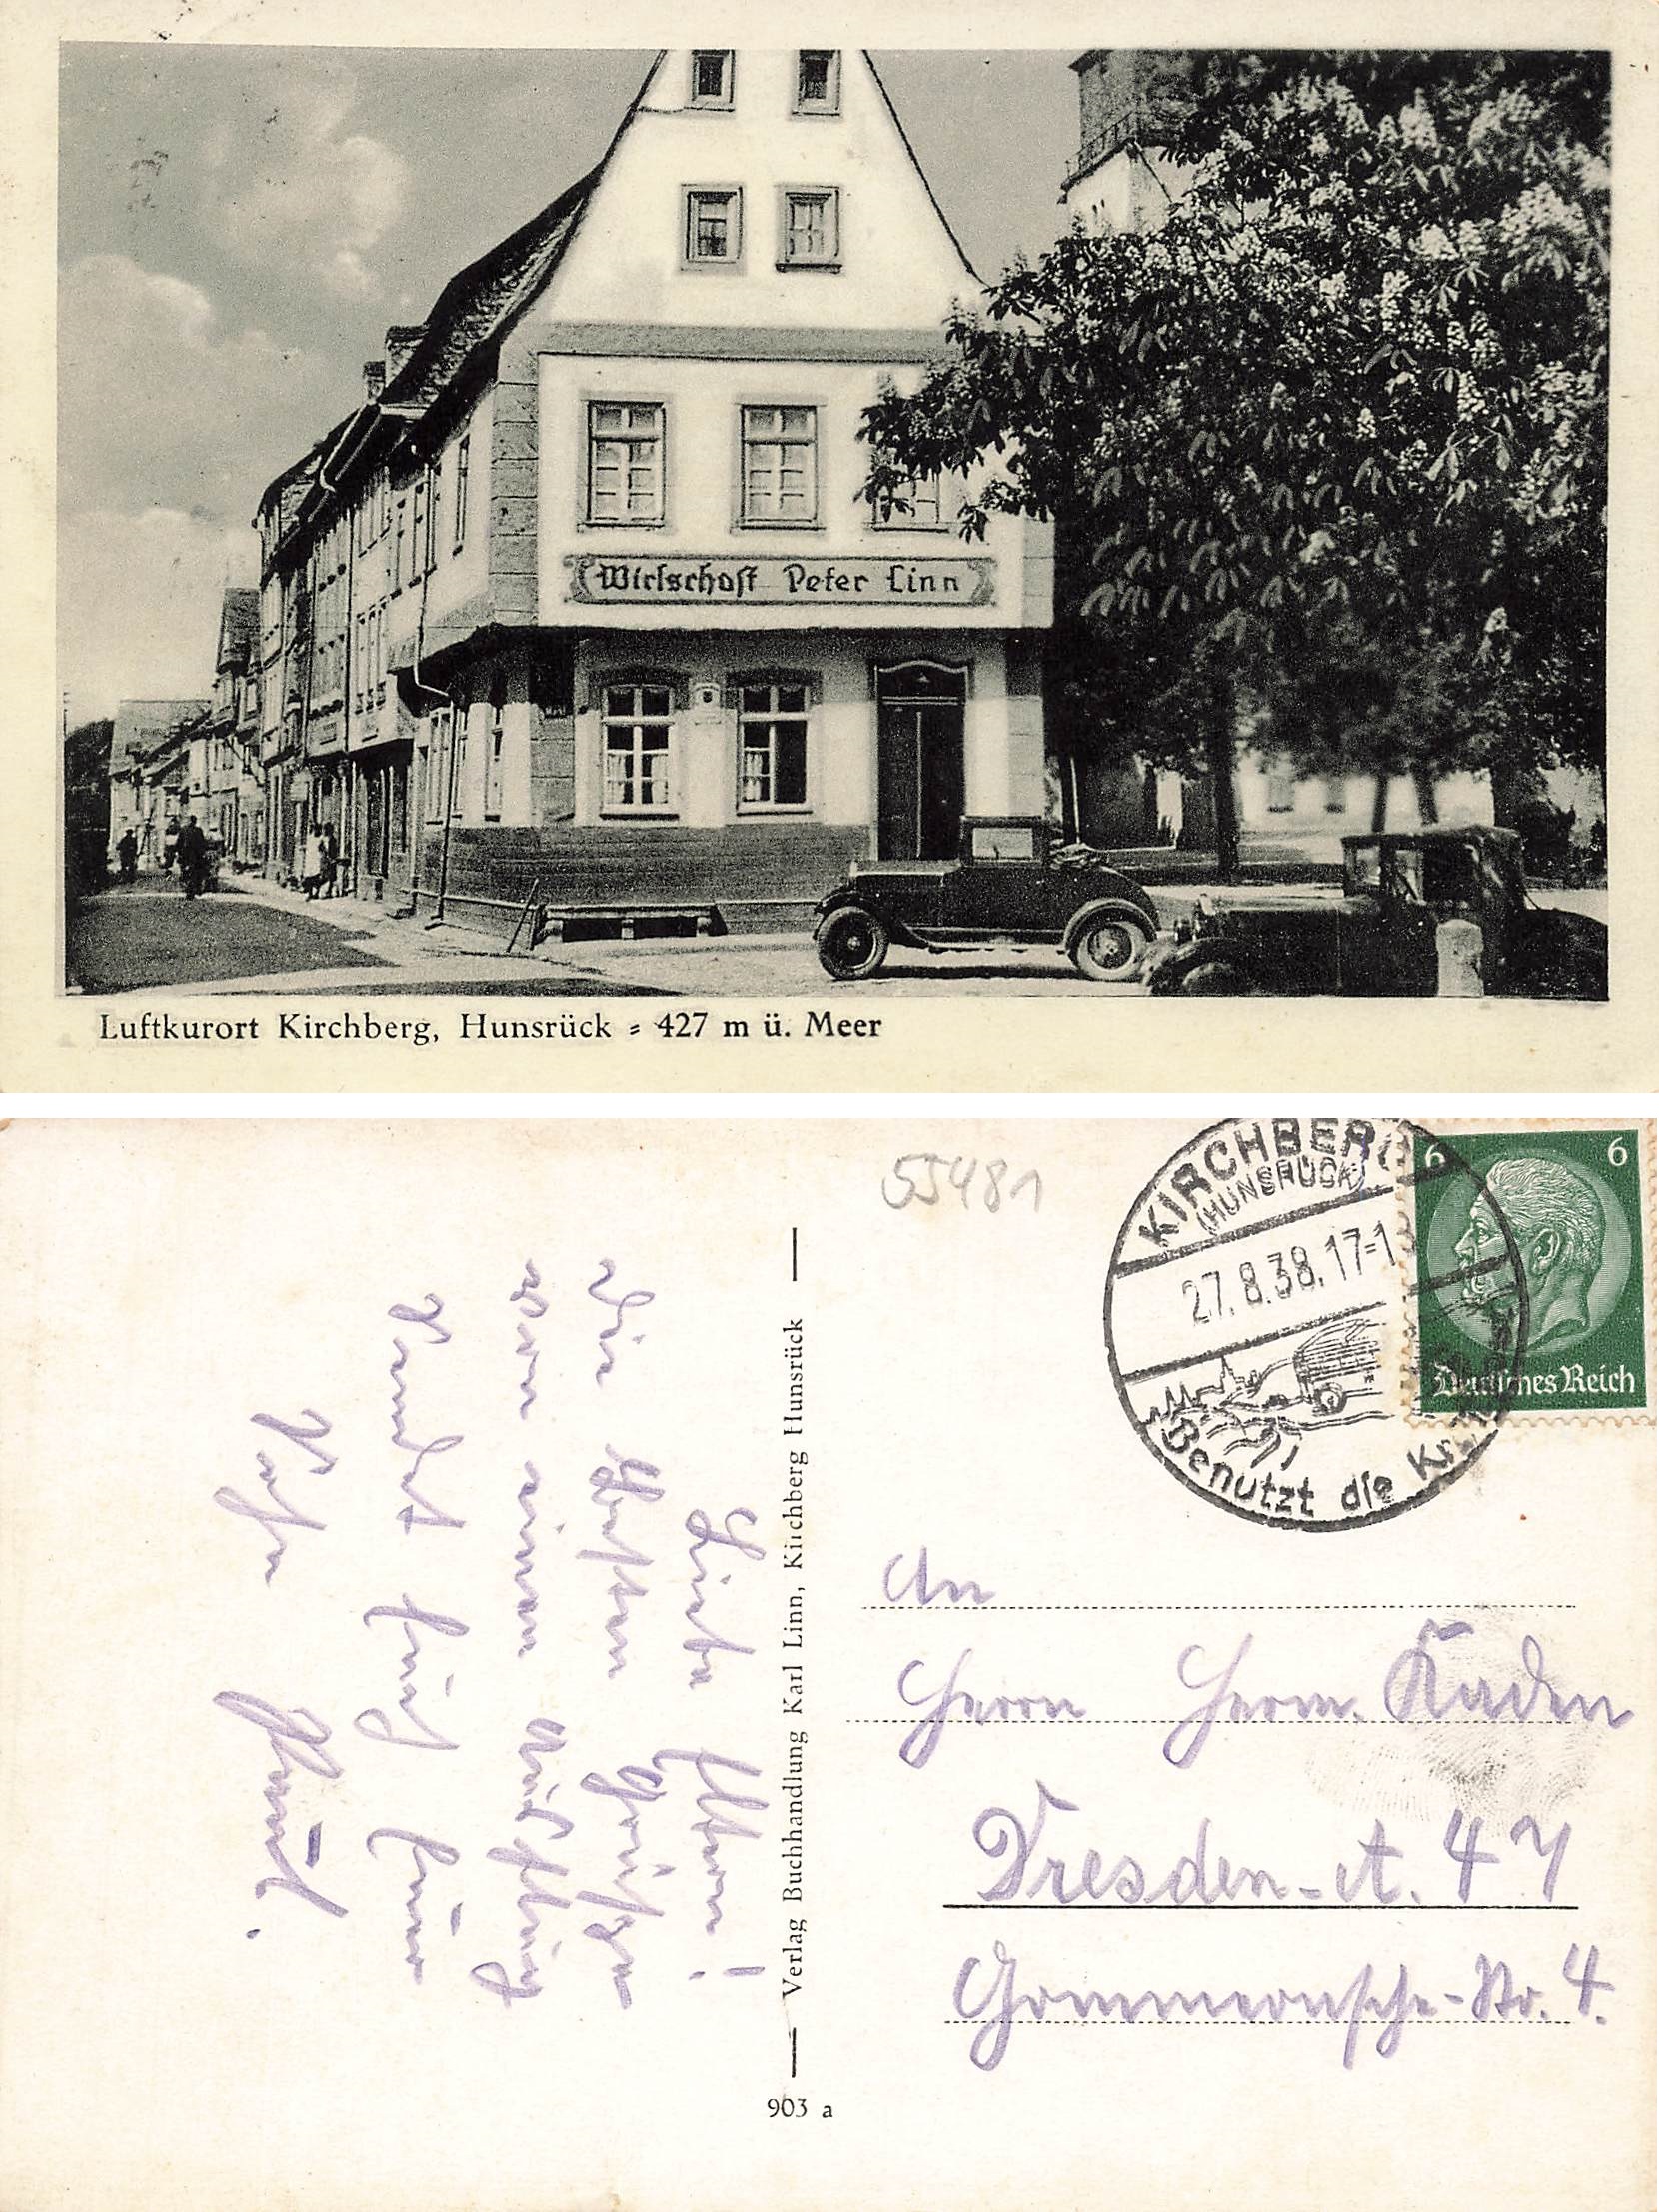 Wirtschaft Peter Linn
Luftkurort Kirchberg, Hunsrück - 427 m ü. Meer
55481
KIRCHBERG
(HUNSRÜCK)
27.8.38.17-1
Benutzt die
6
6
Deutsches Reich
Liebe Eltern!
Die besten Grüße
von einem
sendet Euch Euer
Sohn
Verlag Buchhandlung Karl Linn, Kirchberg Hunsrück
903 a
An
Herrn Herm. Kaden
Dresden-A. 47
Gommernsche-Str. 4.